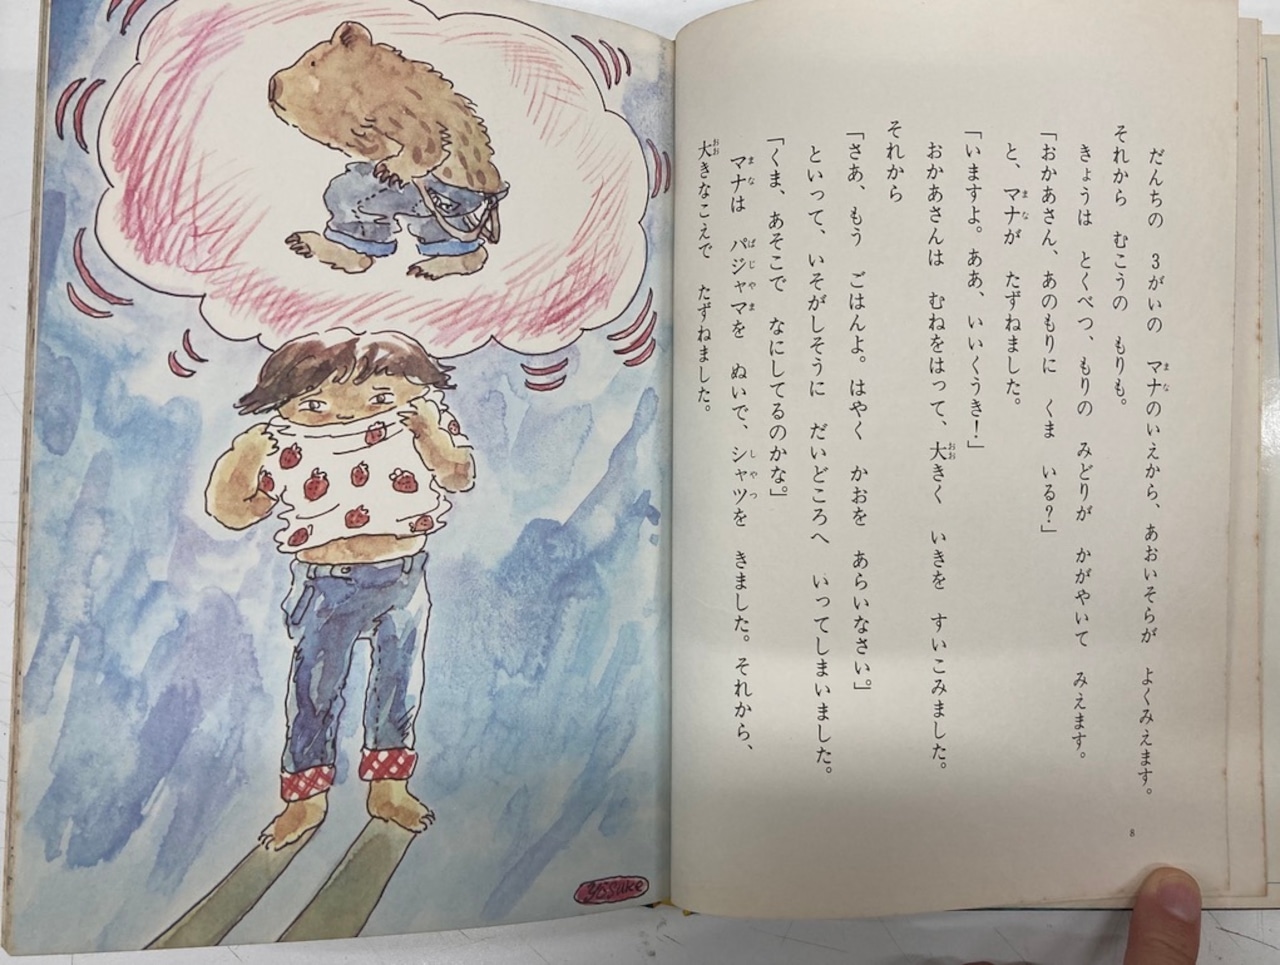 だんちの　3がいの　マナのいえから、あおいそらが　よくみえます。
それから　むこうの　もりも。
きょうは　とくべつ、もりの　みどりが　かがやいて　みえます。
「おかあさん、あのもりに　くま　いる？」
と、マナが　たずねました。
「いますよ。ああ、いいくうき！」
おかあさんは　むねをはって、大きく　いきを　すいこみました。
それから
「さあ、もう　ごはんよ。はやく　かおを　あらいなさい。」
といって、いそがしそうに　だいどころへ　いってしまいました。
「くま、あそこで　なにしてるのかな。」
マナは　パジャマを　ぬいで、シャツを　きました。それから、
大きなこえで　たずねました。
8
YōSUKE